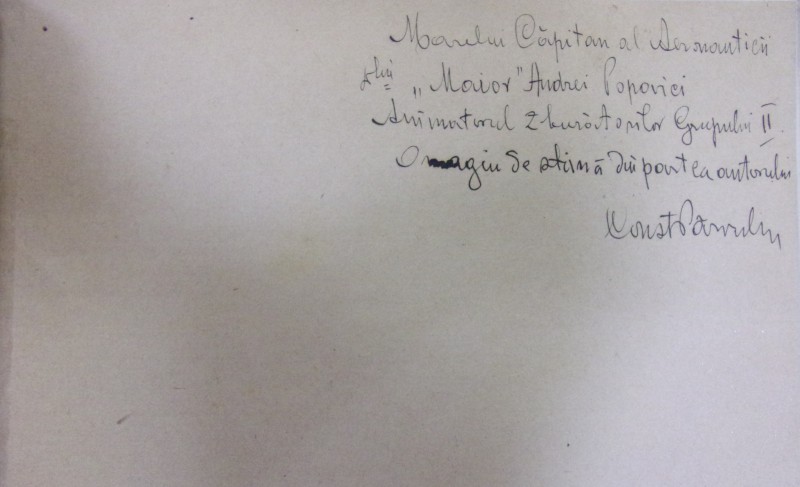 Marelui Căpitan al Aeronauticii
dlui „Maior" Andrei Popovici
Animatorul Zburătorilor Grupului II
Omagiu de stimă din partea autorului
Const Pârvulin